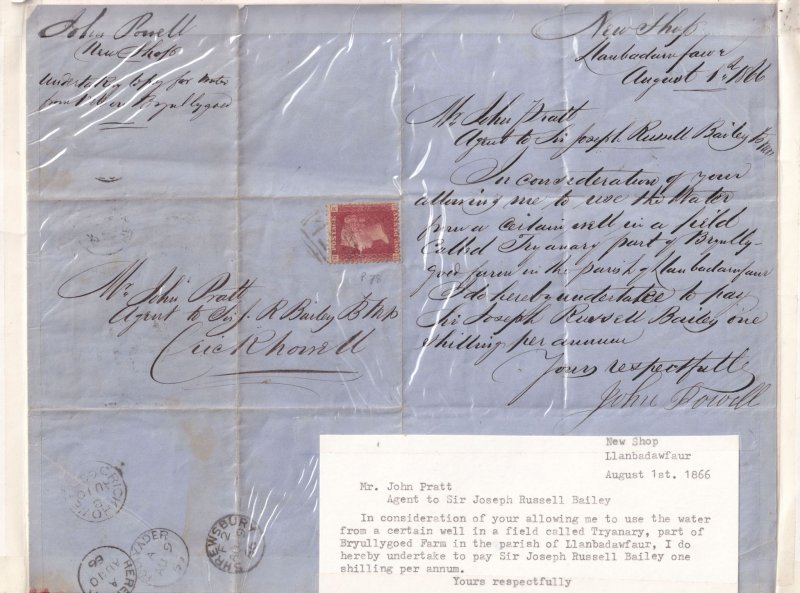 John Powell
New Shop
Undertaking to pay for Water
from Well on Bryullygoed
New Shop
Llanbadarnfawr
August 1st 1866
Mr John Pratt
Agent to Sir Joseph Russell Bailey Bt
In consideration of your
allowing me to use the Water
from a certain well in a field
called Tryanary part of Bryully-
goed farm in the parish of Llanbadarnfaur
I do hereby undertake to pay
Sir Joseph Russell Bailey one
shilling per annum
Yours respectfully
John Powell
POSTAGE
ONE PENNY
P 78
Mr John Pratt
Agent to Sir J. R Bailey Bt
Crickhowell
CRICKHOWELL
SHREWSBURY
66
New Shop
Llanbadawfaur
August 1st. 1866
Mr. John Pratt
Agent to Sir Joseph Russell Bailey
In consideration of your allowing me to use the water
from a certain well in a field called Tryanary, part of
Bryullygoed Farm in the parish of Llanbadawfaur, I do
hereby undertake to pay Sir Joseph Russell Bailey one
shilling per annum.
Yours respectfully